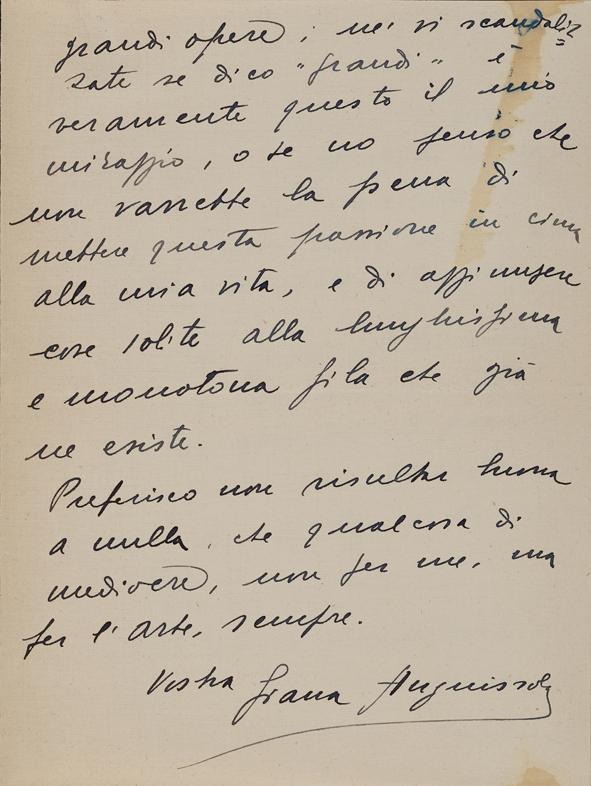 grandi opere; né vi scandaliz=
zate se dico "grandi" è
veramente questo il mio
miraggio, o se no penso che
non varrebbe la pena di
mettere questa passione in cima
alla mia vita, e di aggiungere
cose solite alla lunghissima
e monotona fila che già
ne esiste.
Preferisco non risultar buona
a nulla, che qualcosa di
mediocre, non per me, ma
per l'arte, sempre.
Vostra Giana Anguissola